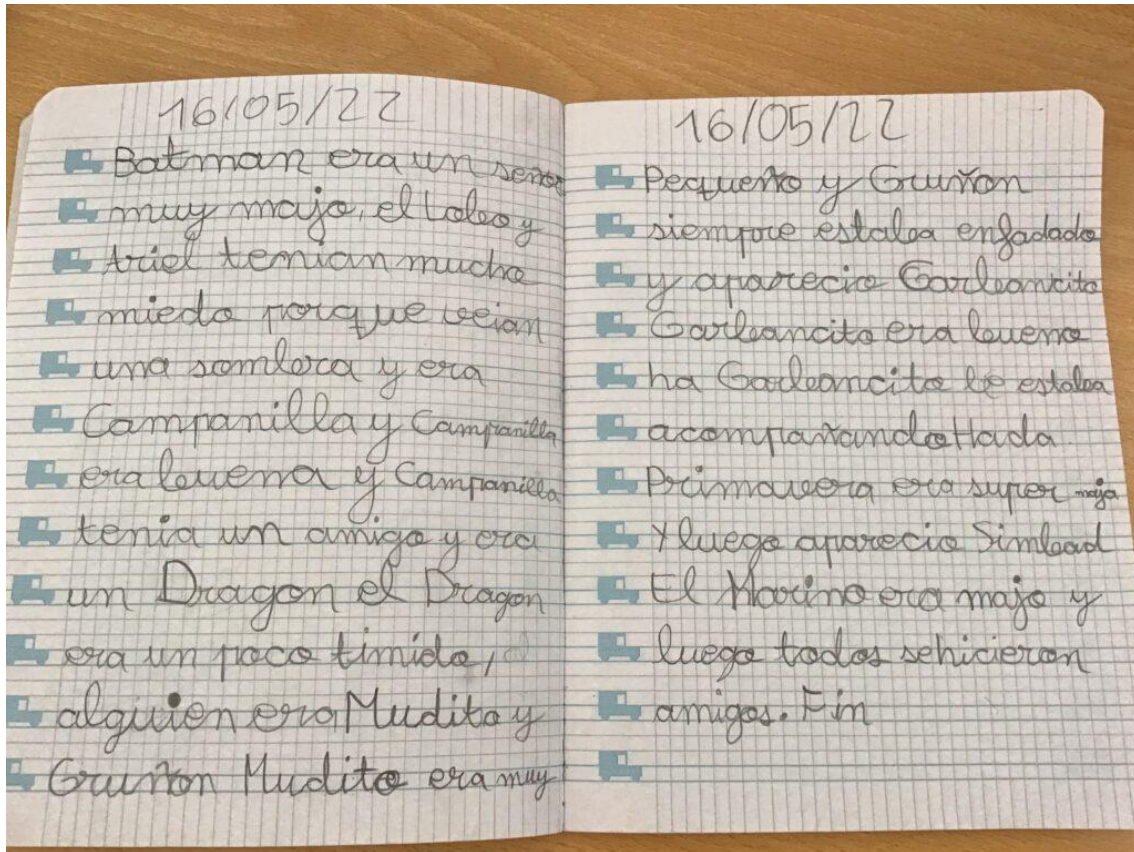 16/05/22
Batman era un señor
muy majo, el lobo y
Ariel tenian mucho
miedo porque veian
una sombra y era
Campanilla y Campanilla
era buena y Campanilla
tenia un amigo y era
un Dragon el Dragon
era un poco timido,
alguien era Mudito y
Gruñon Mudito era muy
16/05/22
Pequeño y Gruñon
siempre estaba enfadado
y aparecio Garbancito
Garbancito era bueno
ha Garbancito le estaba
acompañando Hada.
Primavera era super maja
Y luego aparecio Simbad
El Marino era majo y
luego todos sehicieron
amigos. Fin